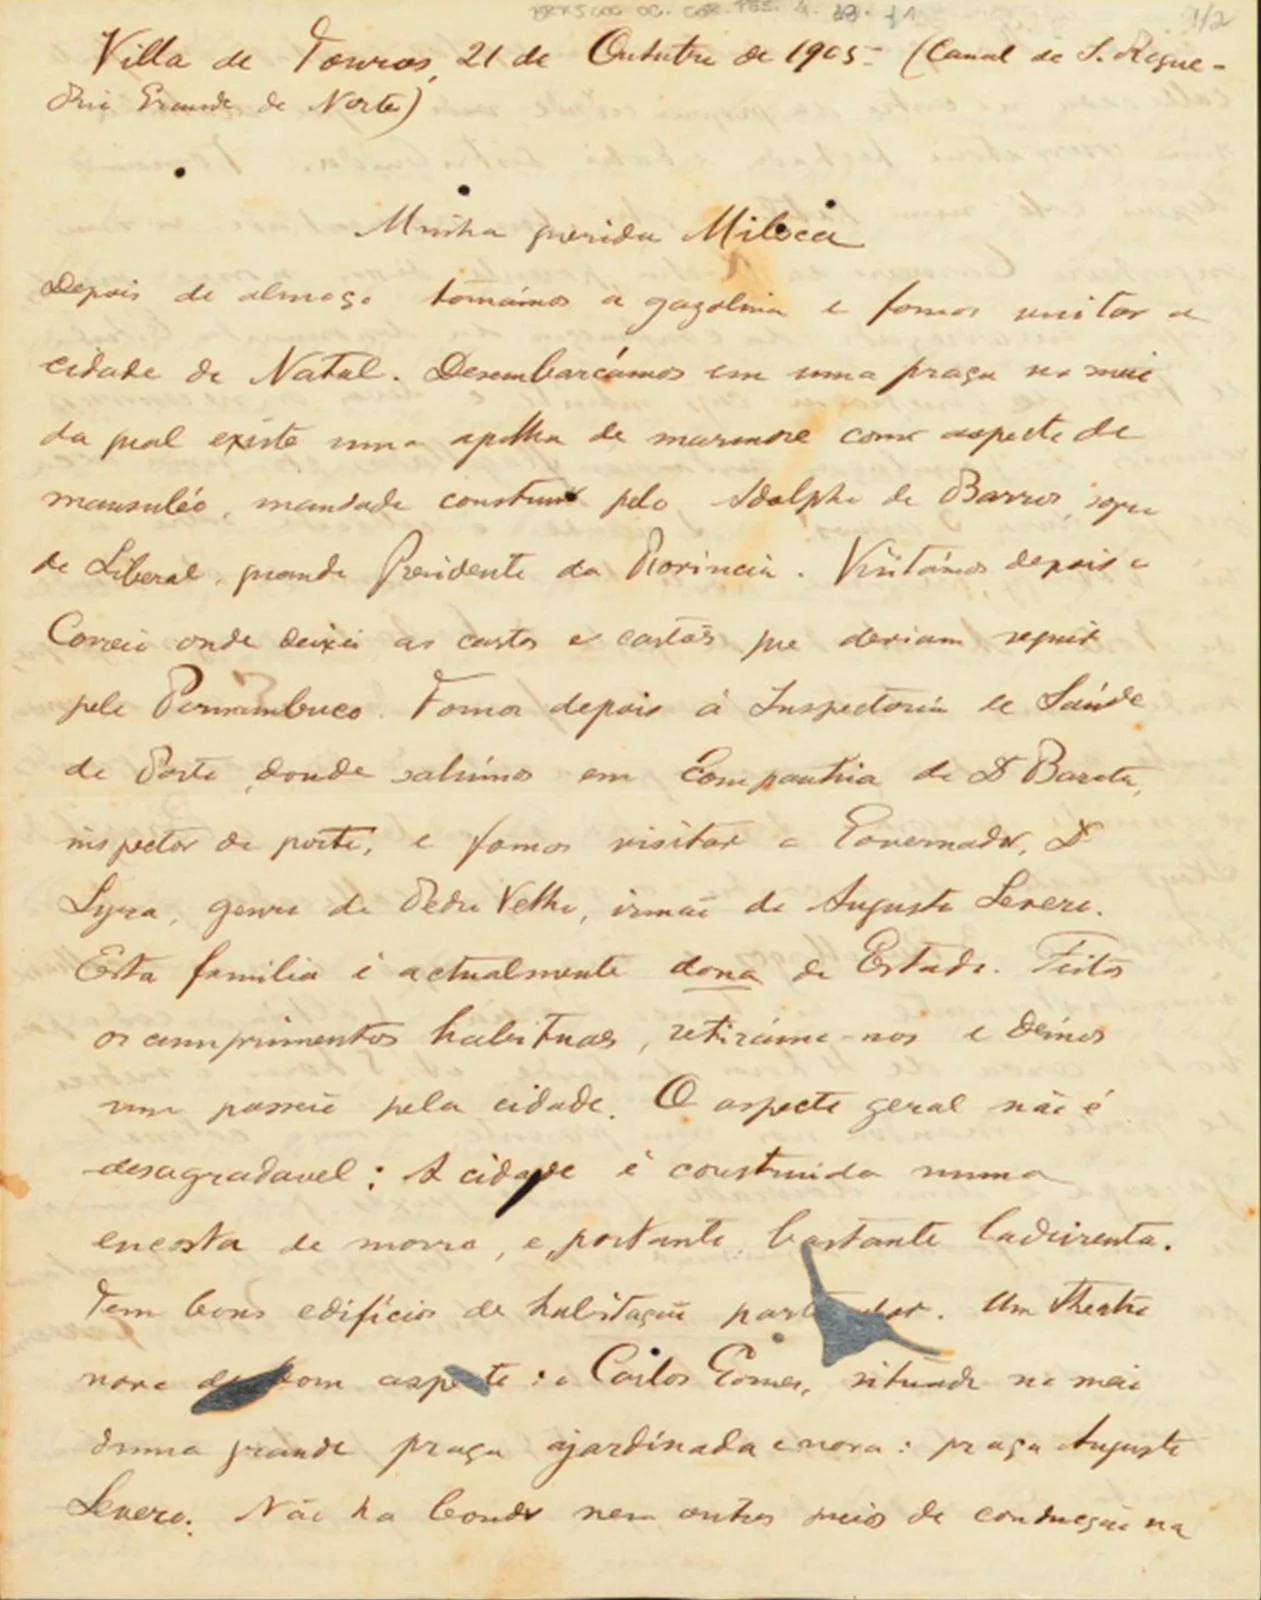 1/2
Villa de Touros, 21 de Outubro de 1905 - (Canal de S. Roque -
Rio Grande do Norte)
Minha querida Miloca
Depois do almoço tomámos a gazolina e fomos visitar a
cidade de Natal. Desembarcámos em uma praça no meio
da qual existe uma agulha de marmore como aspecto de
mausuléo, mandada construir pelo Adolpho de Barros, sogro
do Liberal, quando Presidente da Provincia. Visitámos depois o
Correio onde deixei as cartas e cartões que deviam seguir
pelo Pernambuco. Fomos depois á Inspectoria de Saúde
do Porto, donde sahimos em companhia do Dr Barata,
inspector do porto, e fomos visitar o Governador, Dr
Lyra, genro de Pedro Velho, irmão de Augusto Severo.
Esta familia é actualmente dona do Estado. Feitos
os cumprimentos habituaes, retirámo-nos e démos
um passeio pela cidade. O aspecto geral não é
desagradavel: A cidade é construida numa
encosta de morro, e, portanto, bastante ladeirenta.
Tem bons edifícios de habitação particular. Um theatro
novo de bom aspecto: o Carlos Gomes, situado no meio
duma grande praça ajardinada e nova: praça Augusto
Severo. Não ha bonds nem outros meios de conducção na